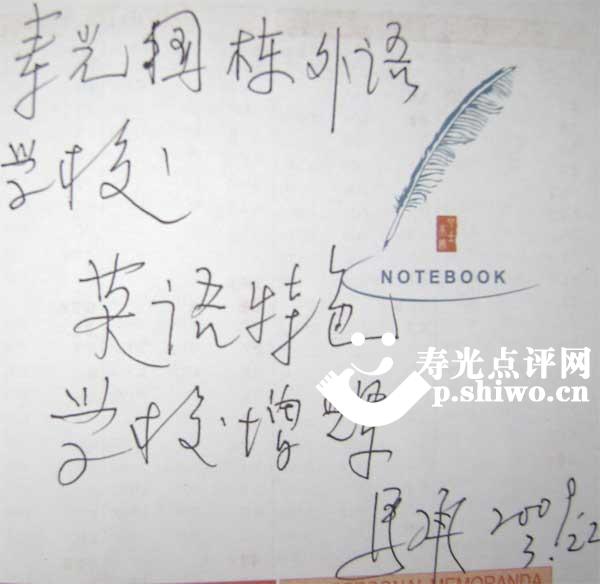 寿光国栋外语
学校
NOTEBOOK
英语特色
学校增辉
寿光点评网
p.shiwo.cn
马承 2009.
3.22
PERSONAL MEMORANDA